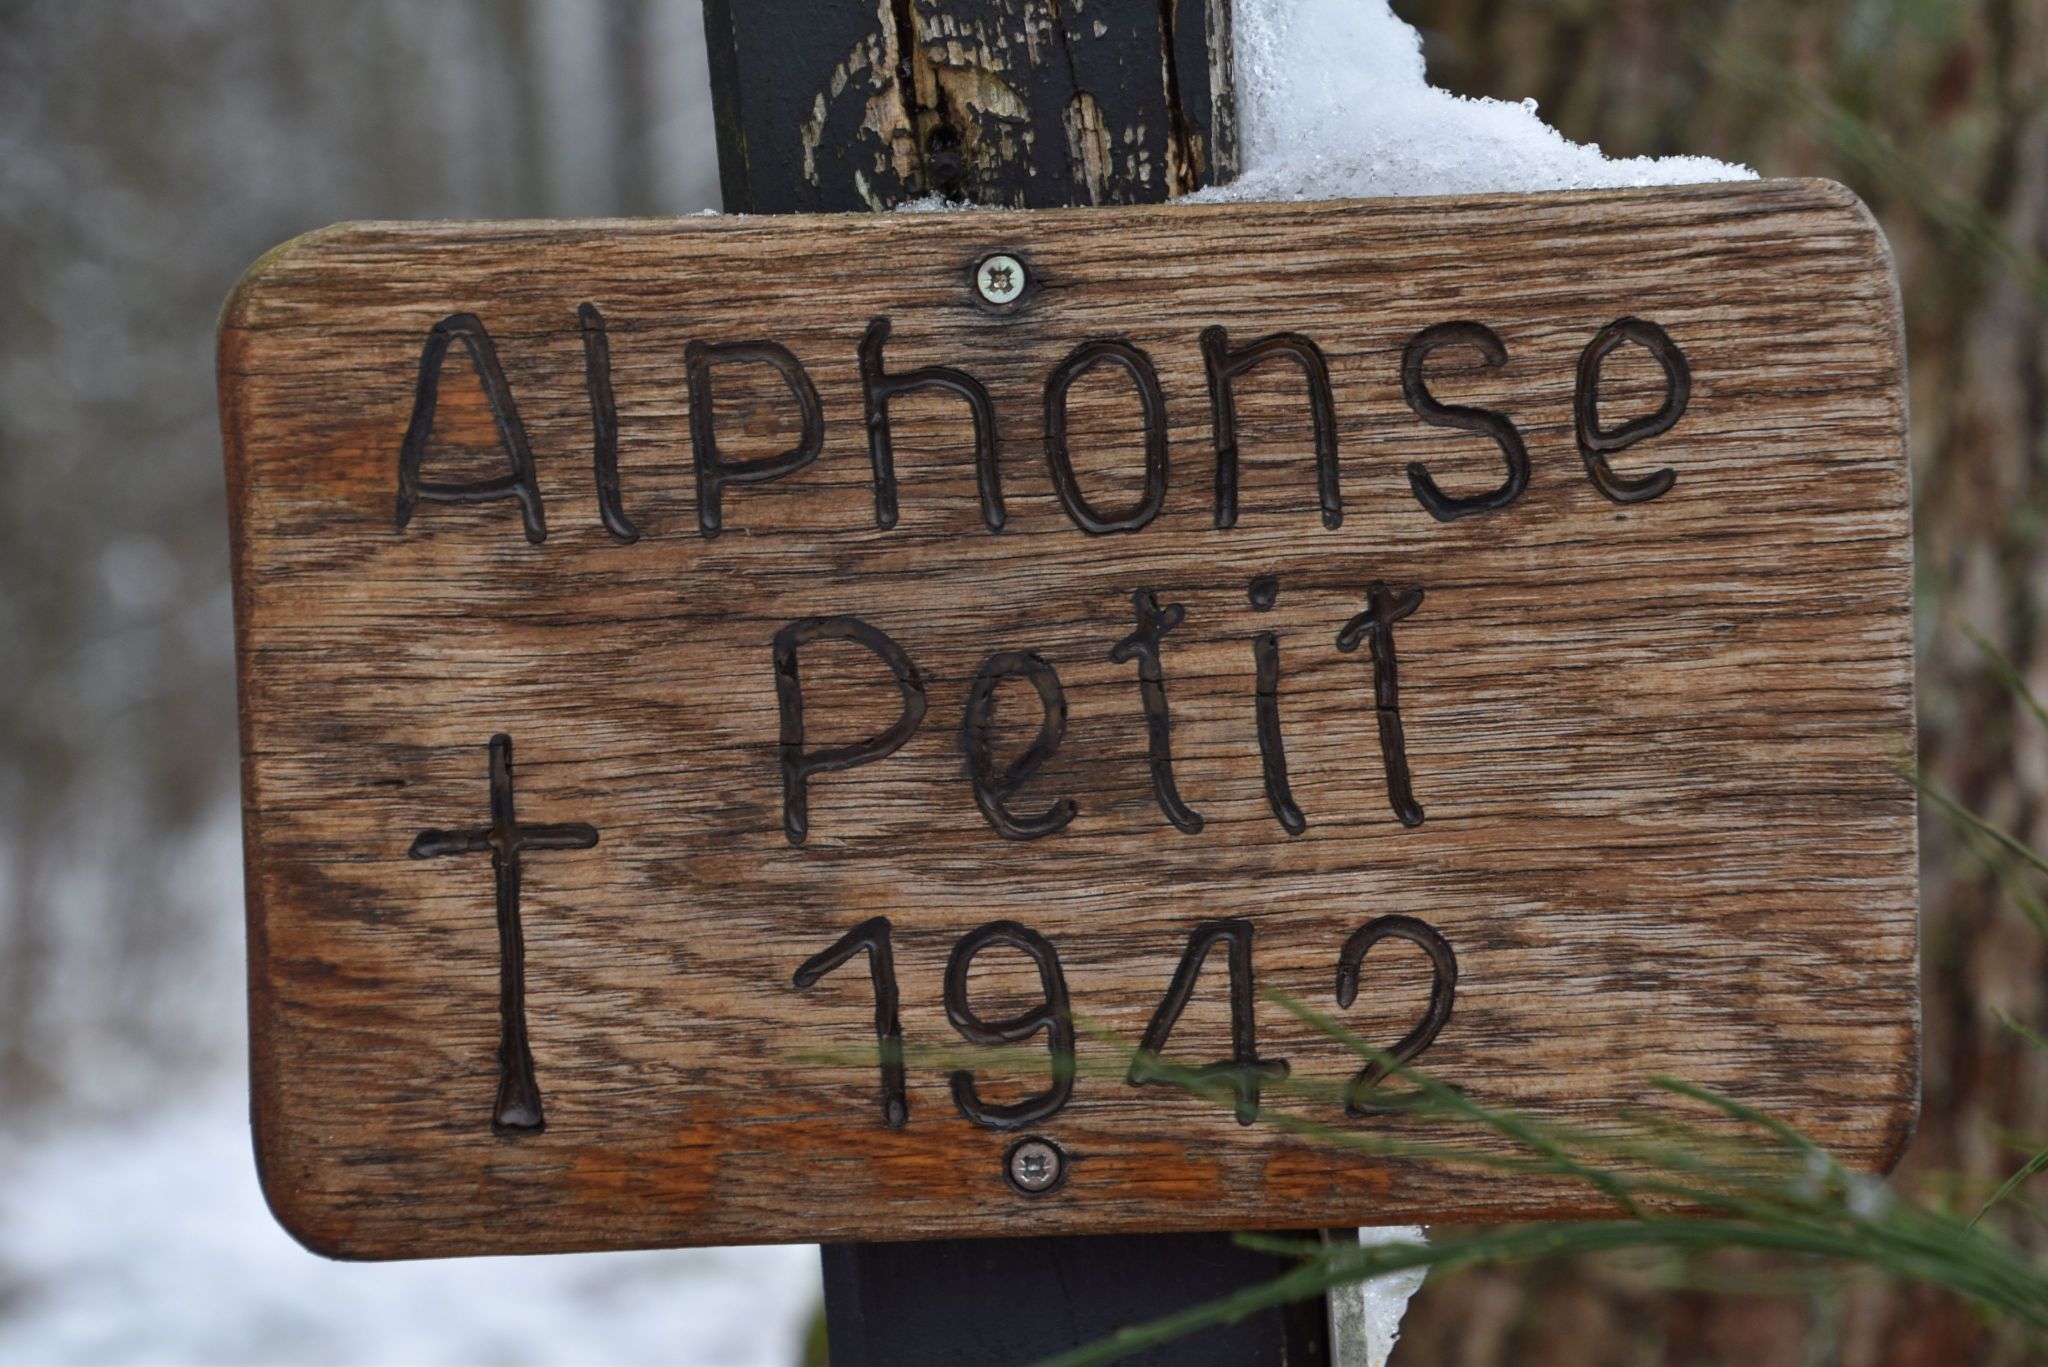 Alphonse
Petit
1942